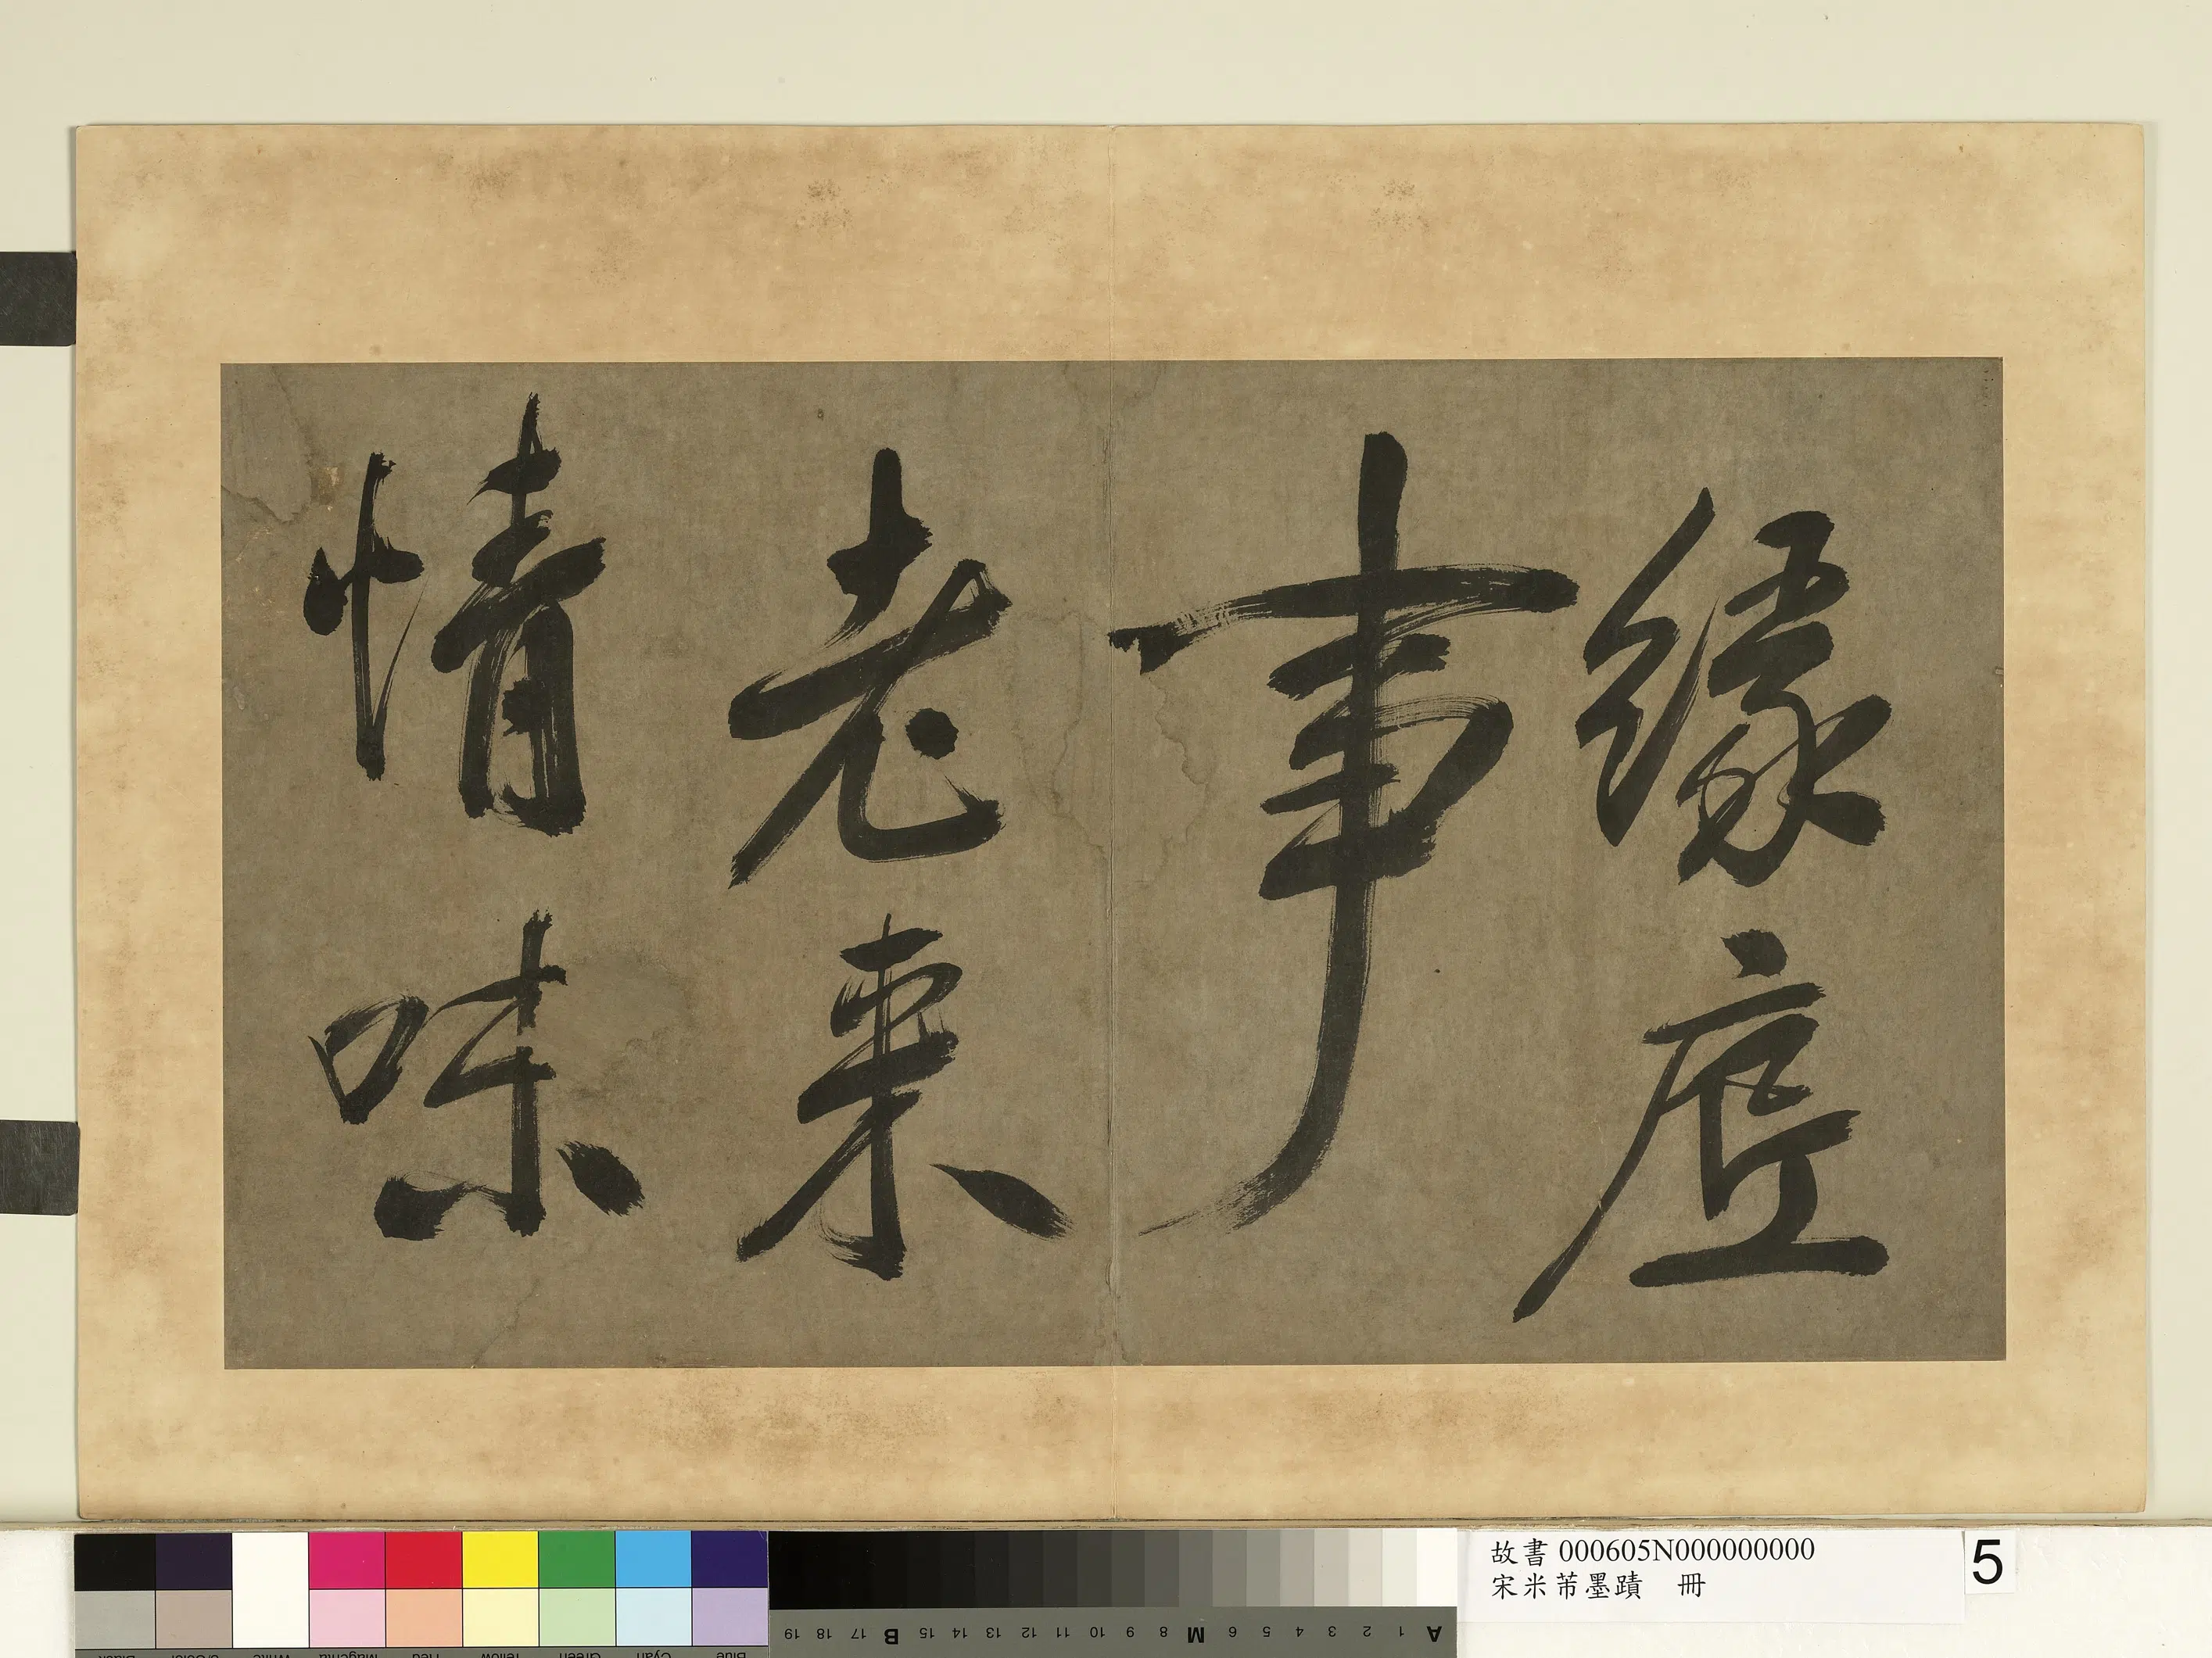 緣
事
老來
情味
故書 000605N000000000
宋米芾墨蹟 冊
5
A 1 2 3 4 5 6 M 8 9 10 11 12 13 14 15 B 17 18 19